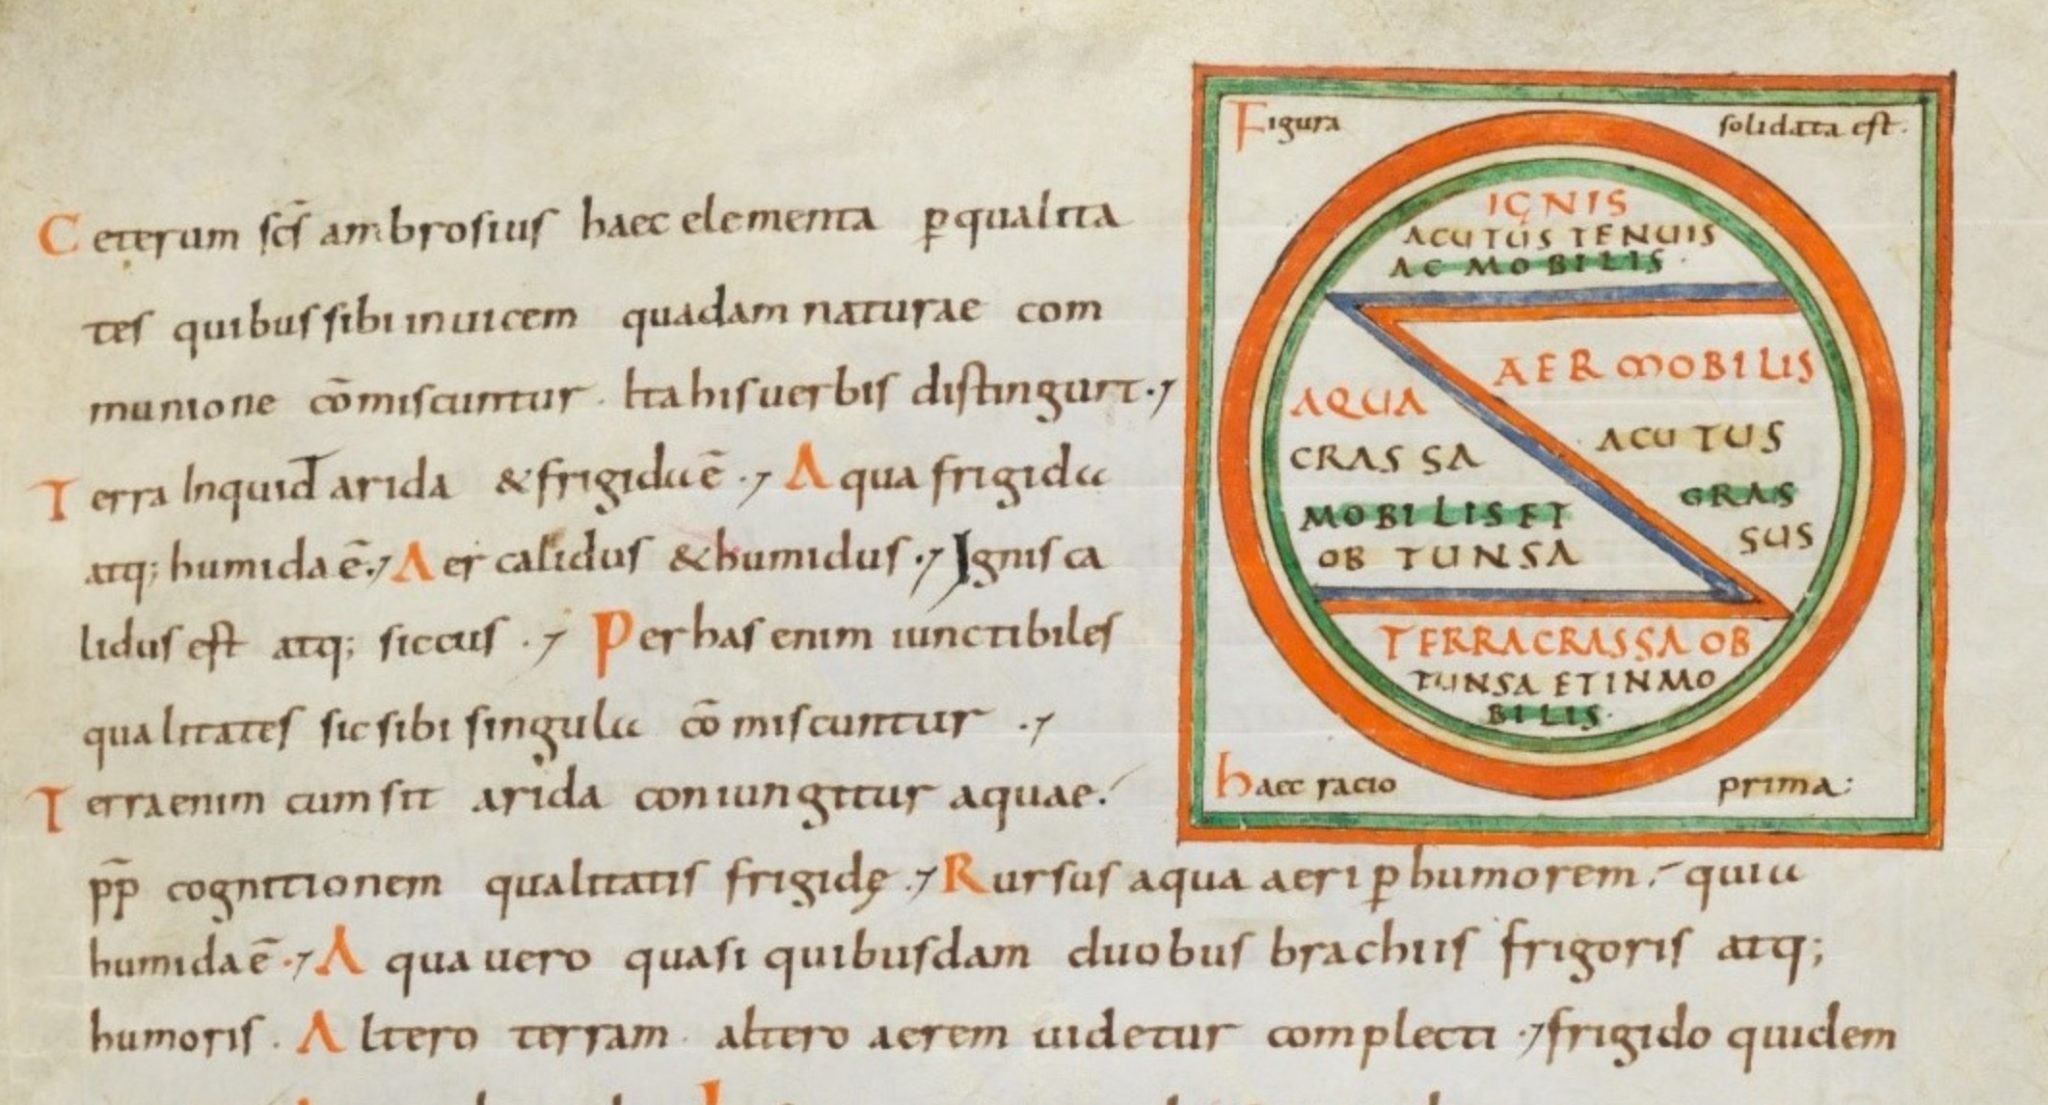 Ceterum scs̄ ambrosius haec elementa ꝑ qualita
tes quibus sibi inuicem quadam naturae com
munione cōmiscuntur. Ita his uerbis distinguit.
Terra Inquid arida & frigida ē. Aqua frigida
atq; humida ē. Aer calidus & humidus. Ignis ca
lidus est atq; siccus. Per has enim iunctibiles
qualitates sic sibi singula cōmiscuntur.
Terra enim cum sit arida coniungitur aquae.
pp̄ cognitionem qualitatis frigidę. Rursus aqua aeri ꝑ humorem. quia
humida ē. Aqua uero quasi quibusdam duobus brachiis frigoris atq;
humoris. Altero terram altero aerem uidetur complecti. frigido quidem
Figura solidata est.
IGNIS
ACUTUS TENUIS
AC MOBILIS.
AER MOBILIS
ACUTUS
GRAS
SUS
AQUA
CRASSA
MOBILIS ET
OBTUNSA
TERRA CRASSA OB
TUNSA ET INMO
BILIS.
haec racio prima: